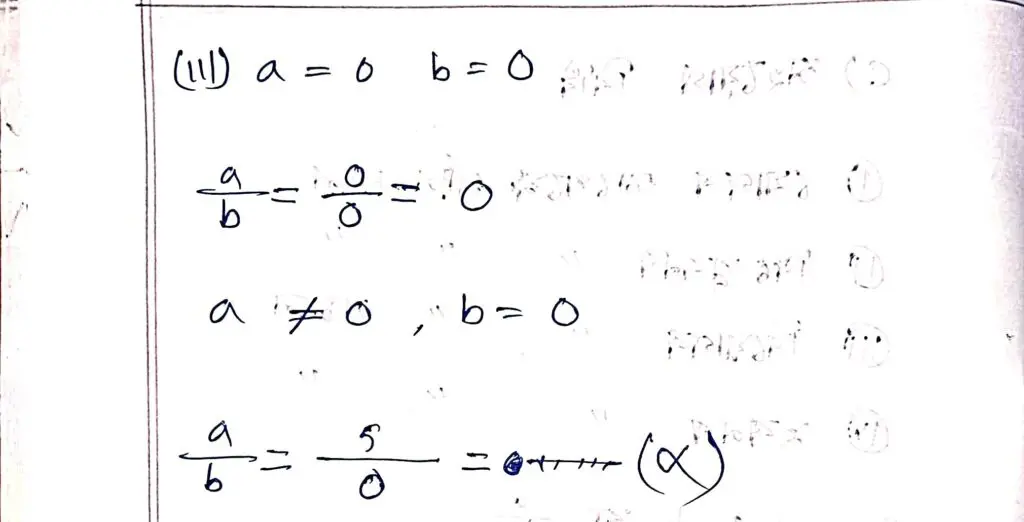 (III) a = 0 b = 0
a/b = 0/0 = 0
a ≠ 0 , b = 0
a/b = 5/0 = (∝)